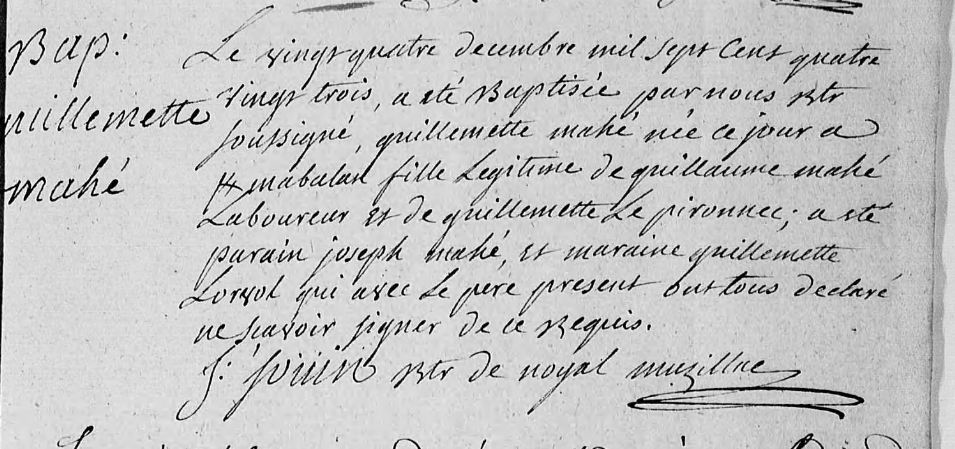 Bap:
guillemette
mahé
Le vingt quatre decembre mil sept Cent quatre
vingt trois, a eté Baptisée par nous Rtr
soussigné, guillemette mahé née ce jour a
mabalan fille Legitime de guillaume mahé
Laboureur et de guillemette Le pironnec; a eté
parain joseph mahé, et maraine guillemette
Lorvol qui avec Le pere present ont tous declaré
ne savoir signer de ce Requis.
Rtr de noyal muzillac